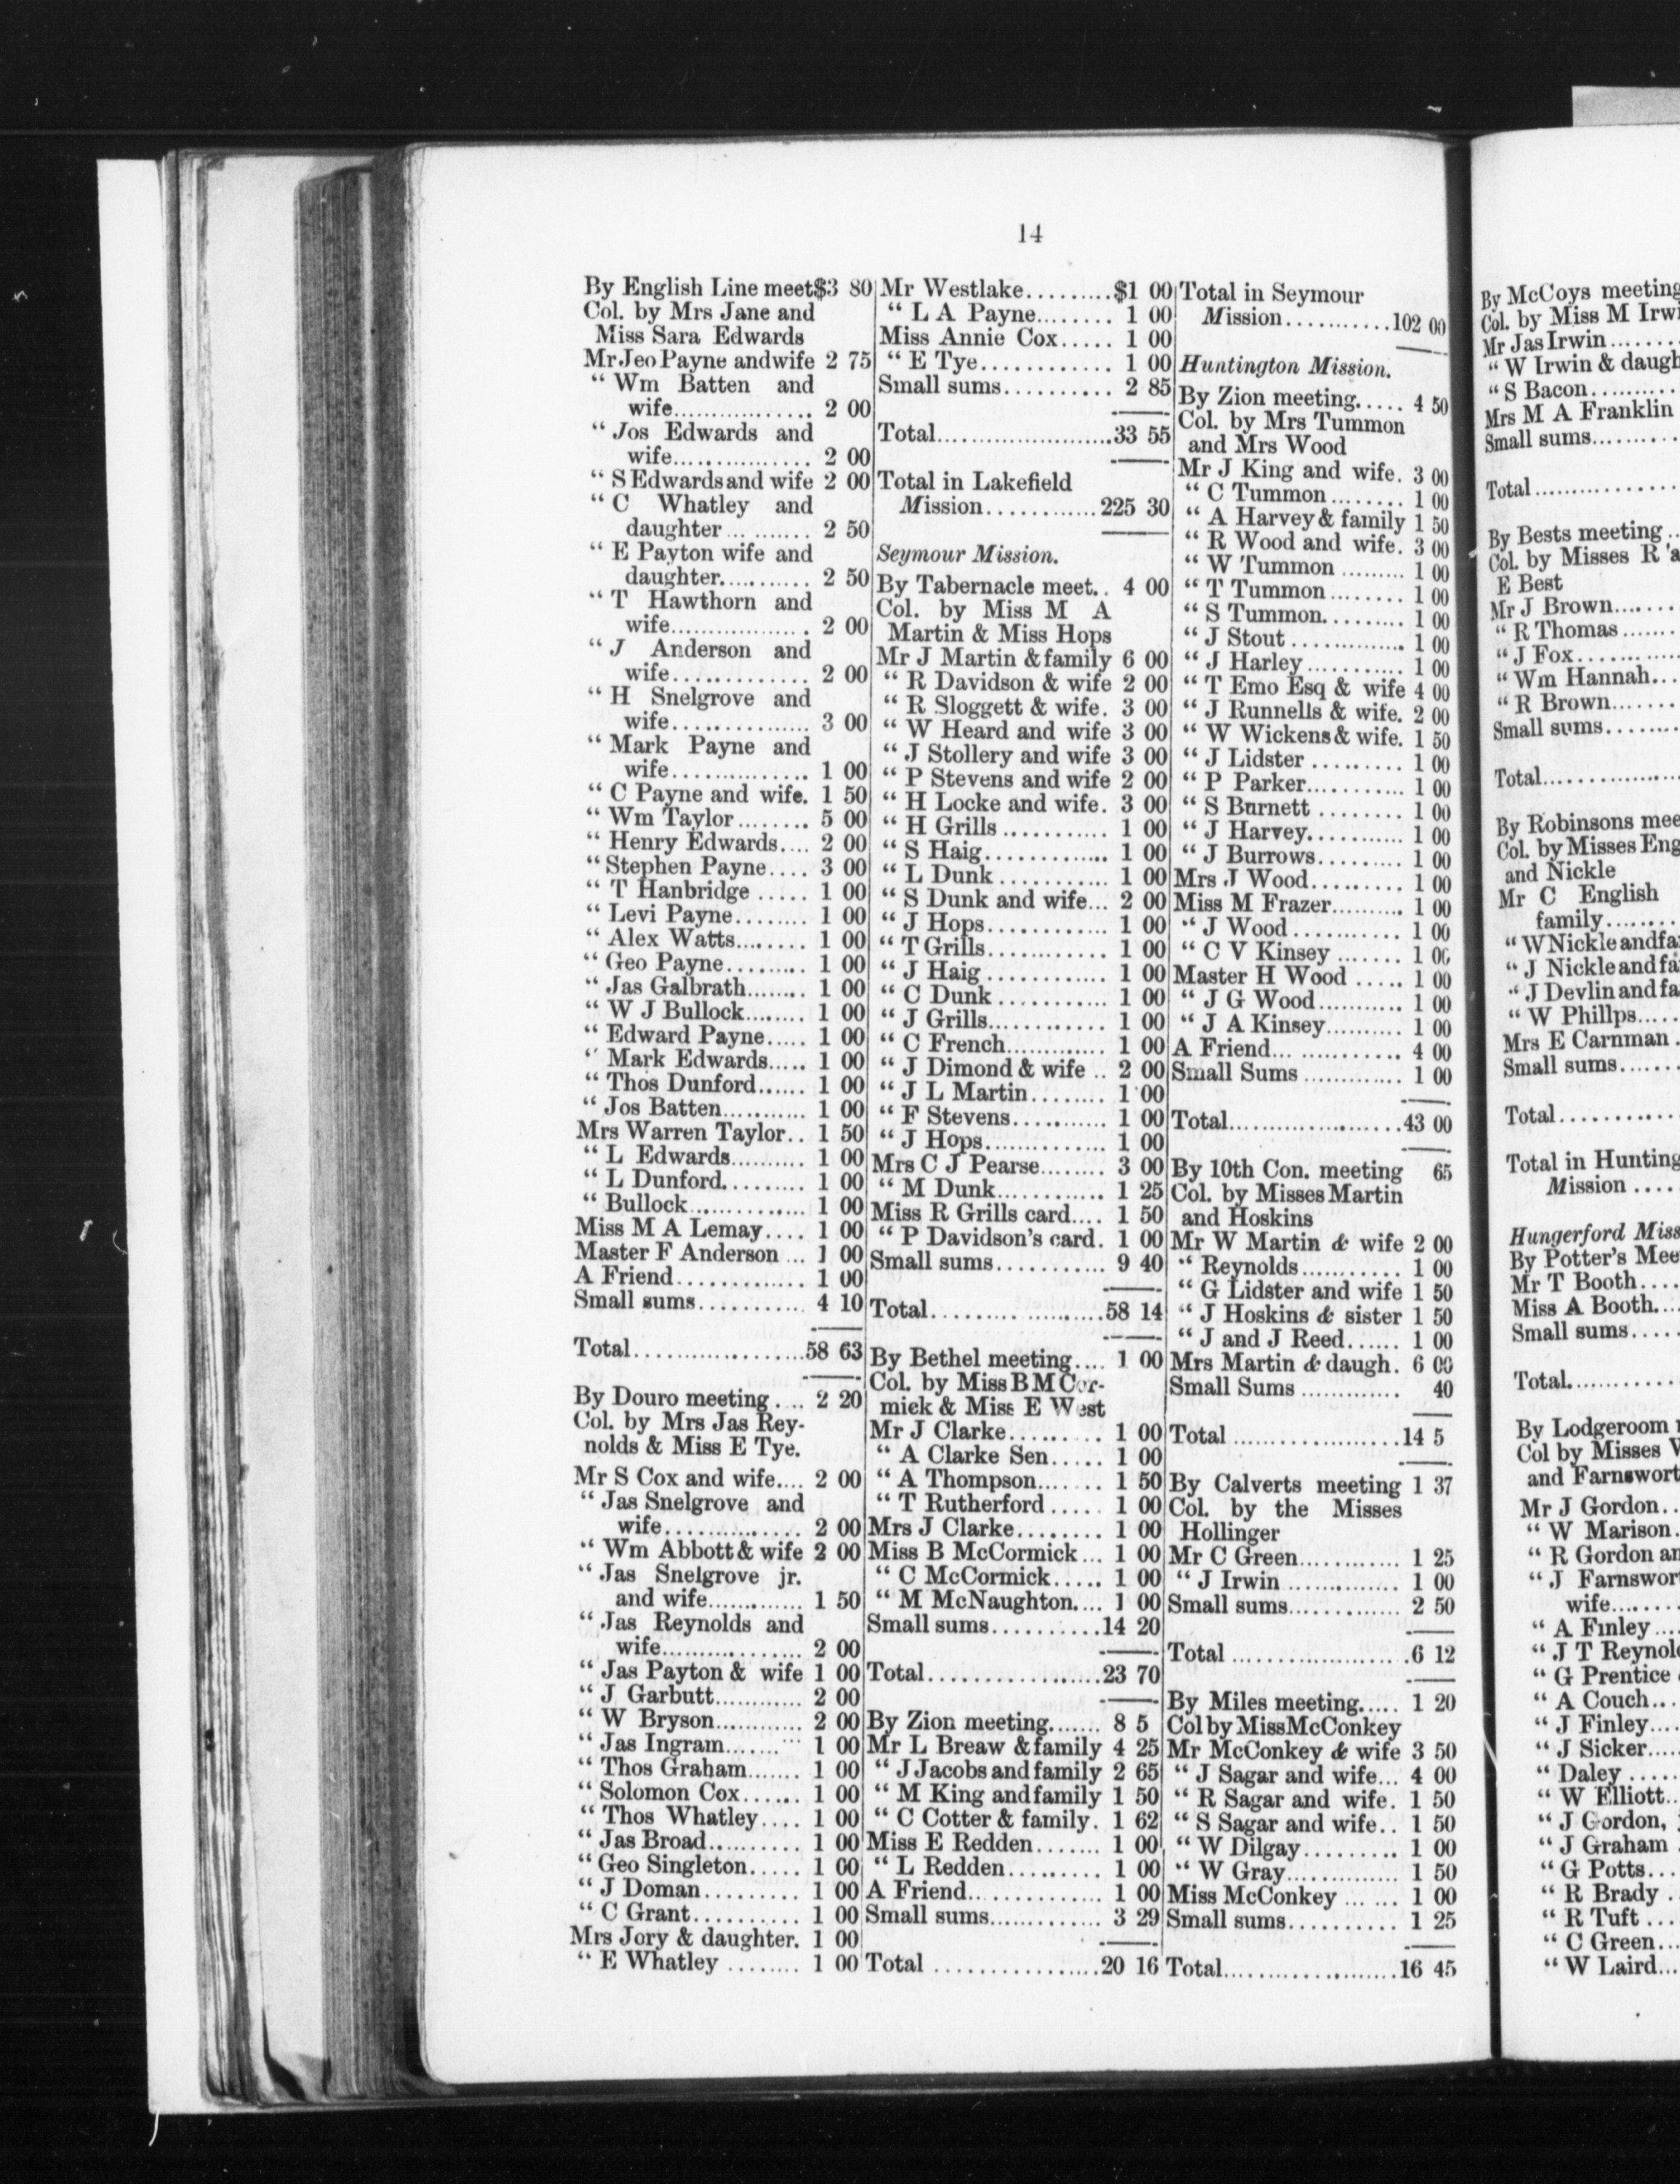 14
By English Line meet$3 80
Col. by Mrs Jane and
Miss Sara Edwards
Mr Jeo Payne and wife 2 75
“ Wm Batten and
wife................. 2 00
“ Jos Edwards and
wife................ 2 00
“ S Edwards and wife 2 00
“ C Whatley and
daughter ... ....... 2 50
“ E Payton wife and
daughter........... 2 50
“ T Hawthorn and
wife................. 2 00
“ J Anderson and
wife............. 2 00
“ H Snelgrove and
wife................ 3 00
“ Mark Payne and
wife............... 1 00
“ C Payne and wife. 1 50
“ Wm Taylor........ 5 00
“ Henry Edwards.... 2 00
“ Stephen Payne.... 3 00
“ T Hanbridge ..... 1 00
“ Levi Payne......... 1 00
“ Alex Watts........ 1 00
“ Geo Payne......... 1 00
“ Jas Galbrath........ 1 00
“ W J Bullock........ 1 00
“ Edward Payne..... 1 00
“ Mark Edwards..... 1 00
“ Thos Dunford...... 1 00
“ Jos Batten........... 1 00
Mrs Warren Taylor.. 1 50
“ L Edwards.......... 1 00
“ L Dunford.......... 1 00
“ Bullock.............. 1 00
Miss M A Lemay.... 1 00
Master F Anderson ... 1 00
A Friend............. 1 00
Small sums........... 4 10
Total....................58 63
By Douro meeting .... 2 20
Col. by Mrs Jas Rey-
nolds & Miss E Tye.
Mr S Cox and wife.... 2 00
“ Jas Snelgrove and
wife............... 2 00
“ Wm Abbott & wife 2 00
“ Jas Snelgrove jr.
and wife............. 1 50
“ Jas Reynolds and
wife.................. 2 00
“ Jas Payton & wife 1 00
“ J Garbutt............ 2 00
“ W Bryson............ 2 00
“ Jas Ingram.......... 1 00
“ Thos Graham....... 1 00
“ Solomon Cox...... 1 00
“ Thos Whatley.... 1 00
“ Jas Broad........... 1 00
“ Geo Singleton..... 1 00
“ J Doman.......... 1 00
“ C Grant........... 1 00
Mrs Jory & daughter. 1 00
“ E Whatley ........ 1 00
Mr Westlake.........$1 00
“ L A Payne........ 1 00
Miss Annie Cox..... 1 00
“ E Tye............ 1 00
Small sums........... 2 85
Total.......................33 55
Total in Lakefield
Mission............225 30
Seymour Mission.
By Tabernacle meet.. 4 00
Col. by Miss M A
Martin & Miss Hops
Mr J Martin & family 6 00
“ R Davidson & wife 2 00
“ R Sloggett & wife. 3 00
“ W Heard and wife 3 00
“ J Stollery and wife 3 00
“ P Stevens and wife 2 00
“ H Locke and wife. 3 00
“ H Grills ........... 1 00
“ S Haig............. 1 00
“ L Dunk ........... 1 00
“ S Dunk and wife... 2 00
“ J Hops............ 1 00
“ T Grills............ 1 00
“ J Haig ............ 1 00
“ C Dunk ........... 1 00
“ J Grills............ 1 00
“ C French............ 1 00
“ J Dimond & wife .. 2 00
“ J L Martin........ 1 00
“ F Stevens............ 1 00
“ J Hops.............. 1 00
Mrs C J Pearse....... 3 00
“ M Dunk............ 1 25
Miss R Grills card.... 1 50
“ P Davidson's card. 1 00
Small sums........... 9 40
Total......................58 14
By Bethel meeting.... 1 00
Col. by Miss B M Cor-
mick & Miss E West
Mr J Clarke.......... 1 00
“ A Clarke Sen..... 1 00
“ A Thompson....... 1 50
“ T Rutherford ..... 1 00
Mrs J Clarke........ 1 00
Miss B McCormick... 1 00
“ C McCormick..... 1 00
“ M McNaughton.... 1 00
Small sums..........14 20
Total....................23 70
By Zion meeting....... 8 5
Mr L Breaw & family 4 25
“ J Jacobs and family 2 65
“ M King and family 1 50
“ C Cotter & family. 1 62
Miss E Redden....... 1 00
“ L Redden.......... 1 00
A Friend............... 1 00
Small sums............. 3 29
Total ...................20 16
Total in Seymour
Mission...........102 00
Huntington Mission.
By Zion meeting..... 4 50
Col. by Mrs Tummon
and Mrs Wood
Mr J King and wife. 3 00
“ C Tummon ........ 1 00
“ A Harvey & family 1 50
“ R Wood and wife. 3 00
“ W Tummon ......... 1 00
“ T Tummon ........ 1 00
“ S Tummon......... 1 00
“ J Stout ............. 1 00
“ J Harley ........... 1 00
“ T Emo Esq & wife 4 00
“ J Runnells & wife. 2 00
“ W Wickens & wife. 1 50
“ J Lidster ......... 1 00
“ P Parker........... 1 00
“ S Burnett ........ 1 00
“ J Harvey........... 1 00
“ J Burrows......... 1 00
Mrs J Wood......... 1 00
Miss M Frazer.......... 1 00
“ J Wood ............ 1 00
“ C V Kinsey ....... 1 00
Master H Wood ..... 1 00
“ J G Wood........... 1 00
“ J A Kinsey.......... 1 00
A Friend... ........... 4 00
Small Sums ............. 1 00
Total.....................43 00
By 10th Con. meeting 65
Col. by Misses Martin
and Hoskins
Mr W Martin & wife 2 00
“ Reynolds........... 1 00
“ G Lidster and wife 1 50
“ J Hoskins & sister 1 50
“ J and J Reed...... 1 00
Mrs Martin & daugh. 6 00
Small Sums ............ 40
Total ....................14 5
By Calverts meeting 1 37
Col. by the Misses
Hollinger
Mr C Green............ 1 25
“ J Irwin .............. 1 00
Small sums.............. 2 50
Total .....................6 12
By Miles meeting..... 1 20
Col by Miss McConkey
Mr McConkey & wife 3 50
“ J Sagar and wife... 4 00
“ R Sagar and wife. 1 50
“ S Sagar and wife.. 1 50
“ W Dilgay.......... 1 00
“ W Gray.............. 1 50
Miss McConkey ... ... 1 00
Small sums........... 1 25
Total.......................16 45
By McCoys meeting
Col. by Miss M Irw
Mr Jas Irwin.......
“ W Irwin & daugh
“ S Bacon..........
Mrs M A Franklin
Small sums.........
Total................
By Bests meeting ..
Col. by Misses R
E Best
Mr J Brown....
“ R Thomas ......
“ J Fox...........
“ Wm Hannah...
“ R Brown.......
Small sums........
Total...............
By Robinsons mee
Col. by Misses Eng
and Nickle
Mr C English
family.......
“ W Nickle and fa
“ J Nickle and fa
“ J Devlin and fa
“ W Phillps.....
Mrs E Carnman .
Small sums......
Total............
Total in Hunting
Mission ....
Hungerford Miss
By Potter's Mee
Mr T Booth....
Miss A Booth...
Small sums....
Total..........
By Lodgeroom
Col by Misses
and Farnswort
Mr J Gordon..
“ W Marison.
“ R Gordon an
“ J Farnswor
wife.......
“ A Finley....
“ J T Reynol
“ G Prentice
“ A Couch...
“ J Finley....
“ J Sicker....
“ Daley .....
“ W Elliott..
“ J Gordon,
“ J Graham
“ G Potts...
“ R Brady .
“ R Tuft ...
“ C Green...
“ W Laird...